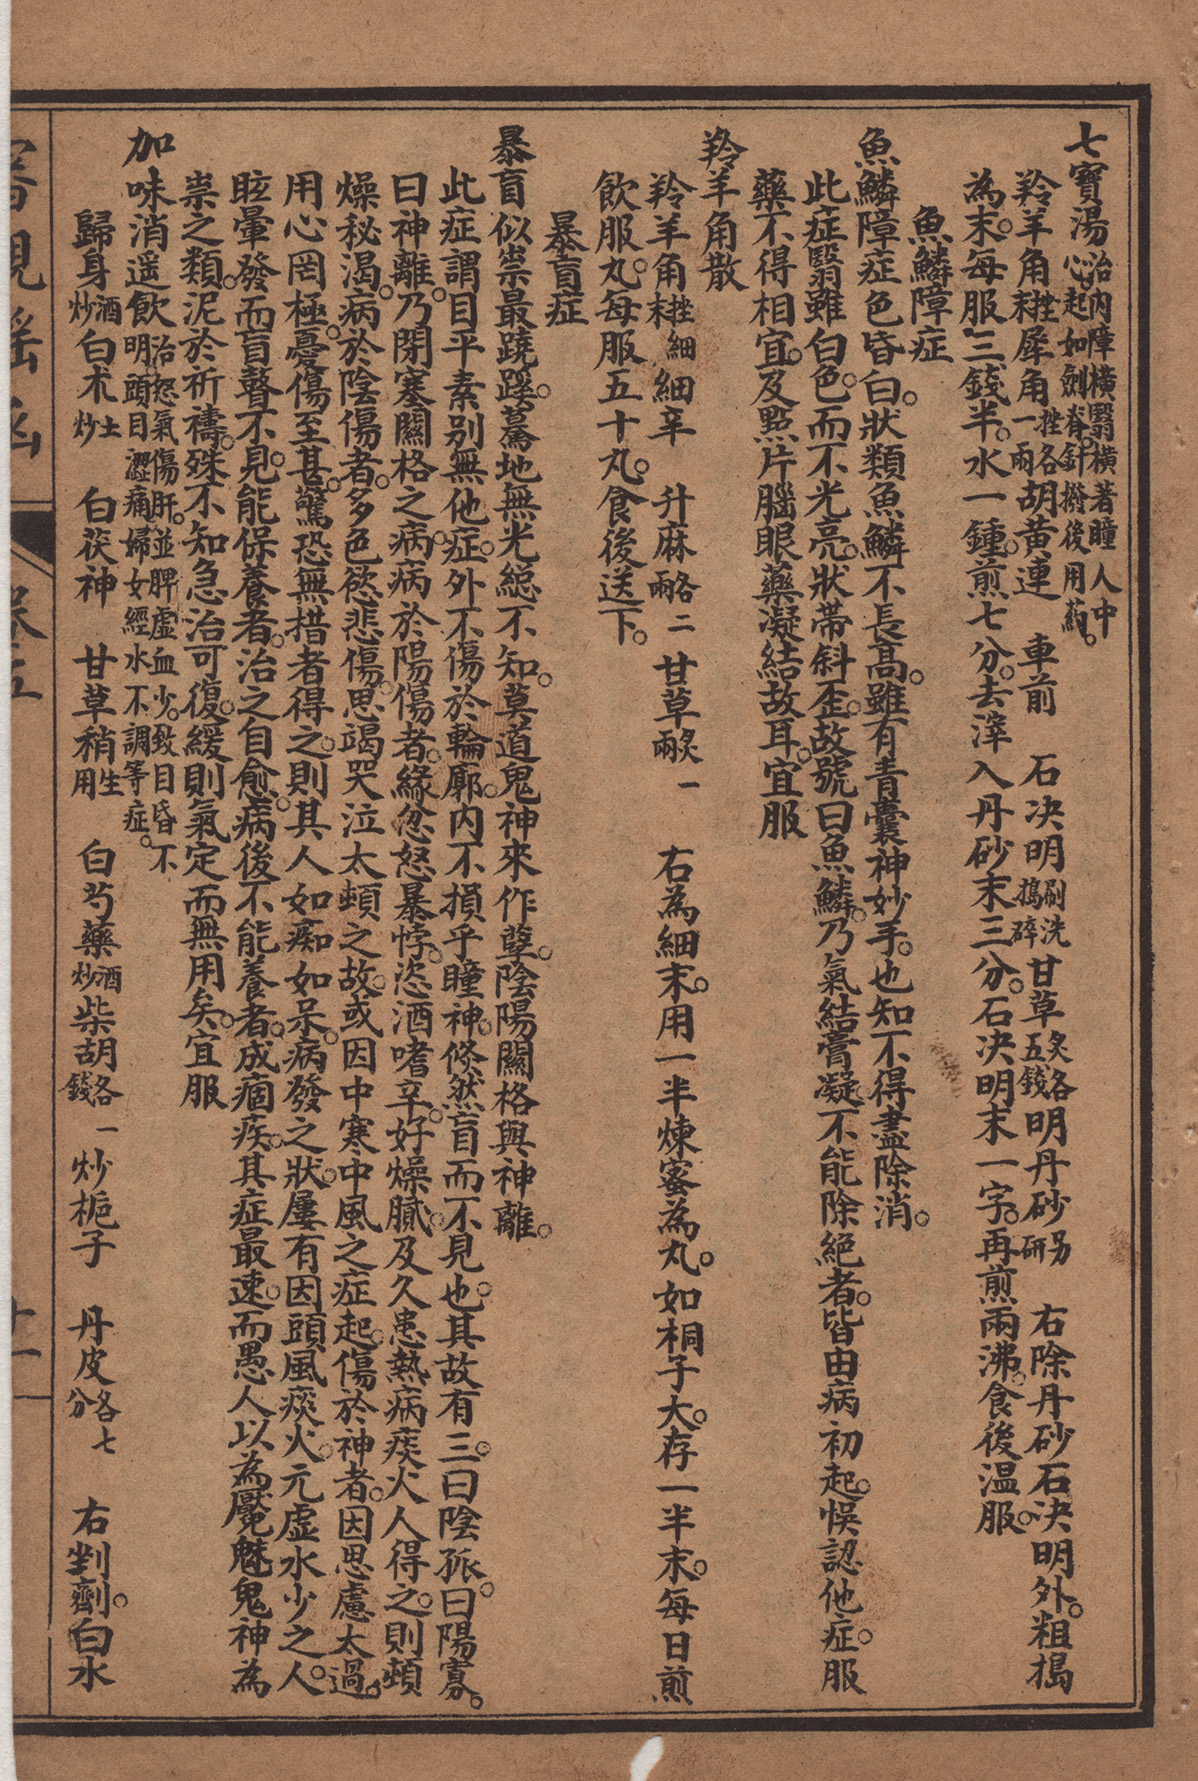 七寶湯治內障橫翳橫著瞳人中心起如劍脊針撥後用藥。
羚羊角挫末犀角挫各一兩胡黃連 車前 石決明刷洗搗碎甘草炙各五錢明丹砂另研 右除丹砂石決明外。粗搗
為末。每服三錢半。水一鍾。煎七分。去滓入丹砂末三分。石決明末一字。再煎兩沸。食後温服。
魚鱗障症
魚鱗障症色昏白。狀類魚鱗不長高。雖有青囊神妙手。也知不得盡除消。
此症翳雖白色。而不光亮。狀帶斜歪。故號曰魚鱗。乃氣結膏凝。不能除絕者。皆由病初起。悞認他症。服
藥不得相宜。及點片腦眼藥凝結故耳。宜服
羚羊角散
羚羊角挫細末細辛 升麻各二兩 甘草炙一兩 右為細末。用一半煉蜜為丸。如桐子大。存一半末。每日煎
飲服丸。每服五十丸。食後送下。
暴盲症
暴盲似祟最蹺蹊。驀地無光總不知。莫道鬼神來作孽。陰陽關格與神離。
此症謂目平素別無他症。外不傷於輪廓。內不損乎瞳神。倏然盲而不見也。其故有三。曰陰孤。曰陽寡。
曰神離。乃閉塞關格之病。病於陽傷者。緣忿怒暴悖。恣酒嗜辛。好燥膩。及久患熱病痰火人得之。則頻
燥秘渴。病於陰傷者。多色慾悲傷。思竭哭泣太頻之故。或因中寒中風之症起。傷於神者。因思慮太過。
用心罔極。憂傷至甚。驚恐無措者得之。則其人如痴如呆。病發之狀。屢有因頭風痰火。元虛水少之人。
眩暈發而盲瞽不見。能保養者。治之自愈。病後不能養者。成痼疾。其症最速。而愚人以為魘魅鬼神為
祟之類。泥於祈禱。殊不知急治可復。緩則氣定而無用矣。宜服
加味消遥飲治怒氣傷肝。並脾虛血少。致目昏不明。頭目澀痛。婦女經水不調等症。
歸身酒炒白朮土炒 白茯神 甘草稍生用 白芍藥酒炒柴胡各一錢 炒梔子 丹皮各七分 右剉劑。白水